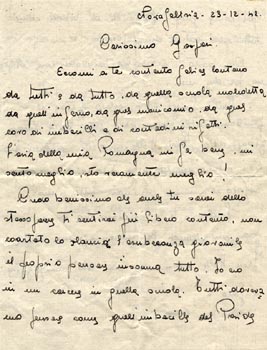 23-12-42.
Carissimo Gasperi
Eccomi a te contento felice lontano
da tutti e da tutto, da quella scuola maledetta
da quell'inferno, da quel manicomio, da quel
coro di imbecilli e di contadini rifatti.
l'aria della mia Romagna mi fa bene, mi
sento meglio, sto veramente meglio!
Credo benissimo che anche tu sarai dello
stesso ti sentirai più libero contento, non
lo slancio l'esuberanza giovanile
il proprio pensiero insomma tutto. Io ero
in un carcere in quella scuola. Tutti
come quell'imbecille del Preside